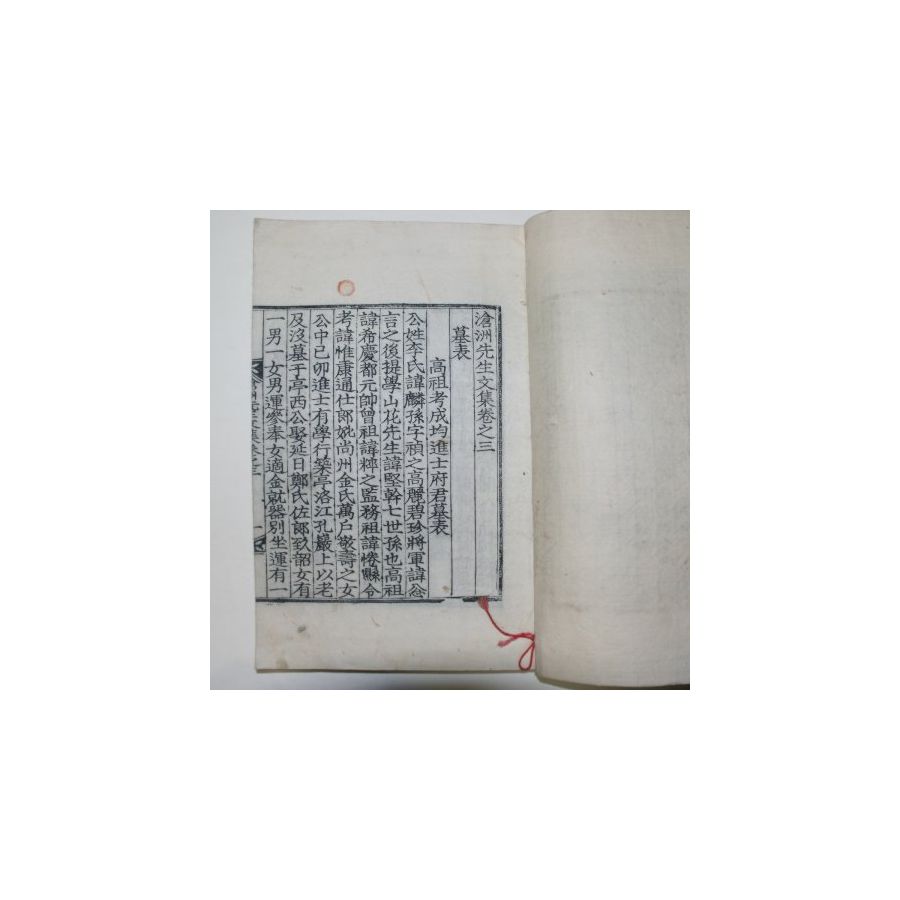 滄洲先生文集卷之三
墓表
高祖考成均進士府君墓表
公姓李氏諱麟孫字禎之高麗碧珍將軍諱忩
言之後提學山花先生諱堅幹七世孫也高祖
諱希慶都元帥曾祖諱粹之監務祖諱惓縣令
考諱惟康通仕郎妣尚州金氏萬戶敬壽之女
公中己卯進士有學行築亭洛江孔巖上以老
及沒墓于亭西公娶延日鄭氏佐郎致韶女有
一男一女男運叅奉女適金就器別坐運有一